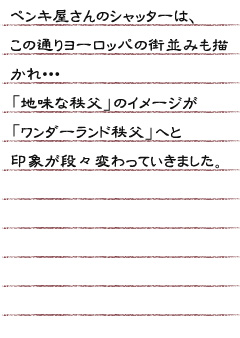 ペンキ屋さんのシャッターは、
この通りヨーロッパの街並みも描
かれ・・・
「地味な秩父」のイメージが
「ワンダーランド秩父」へと
印象が段々変わっていきました。